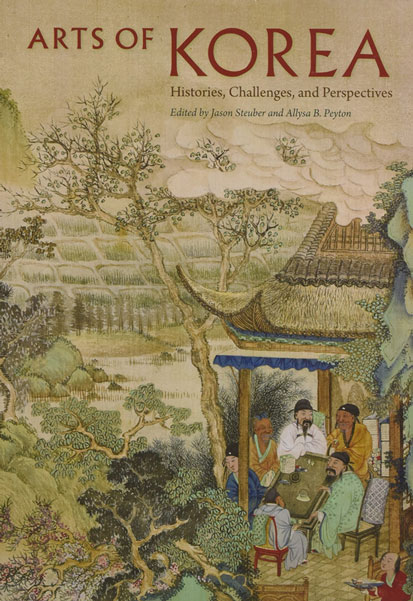 ARTS OF KOREA
Histories, Challenges, and Perspectives
Edited by Jason Steuber and Allysa B. Peyton